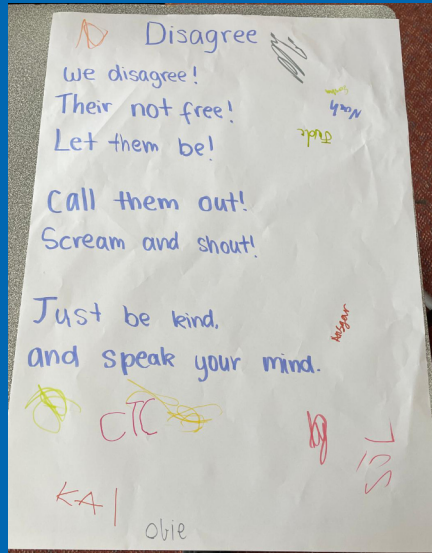 Disagree
we disagree!
Their not free!
Let them be!
Call them out!
Scream and shout!
Just be kind,
and speak your mind.
Noah
Jude
CTC
KAI
obie